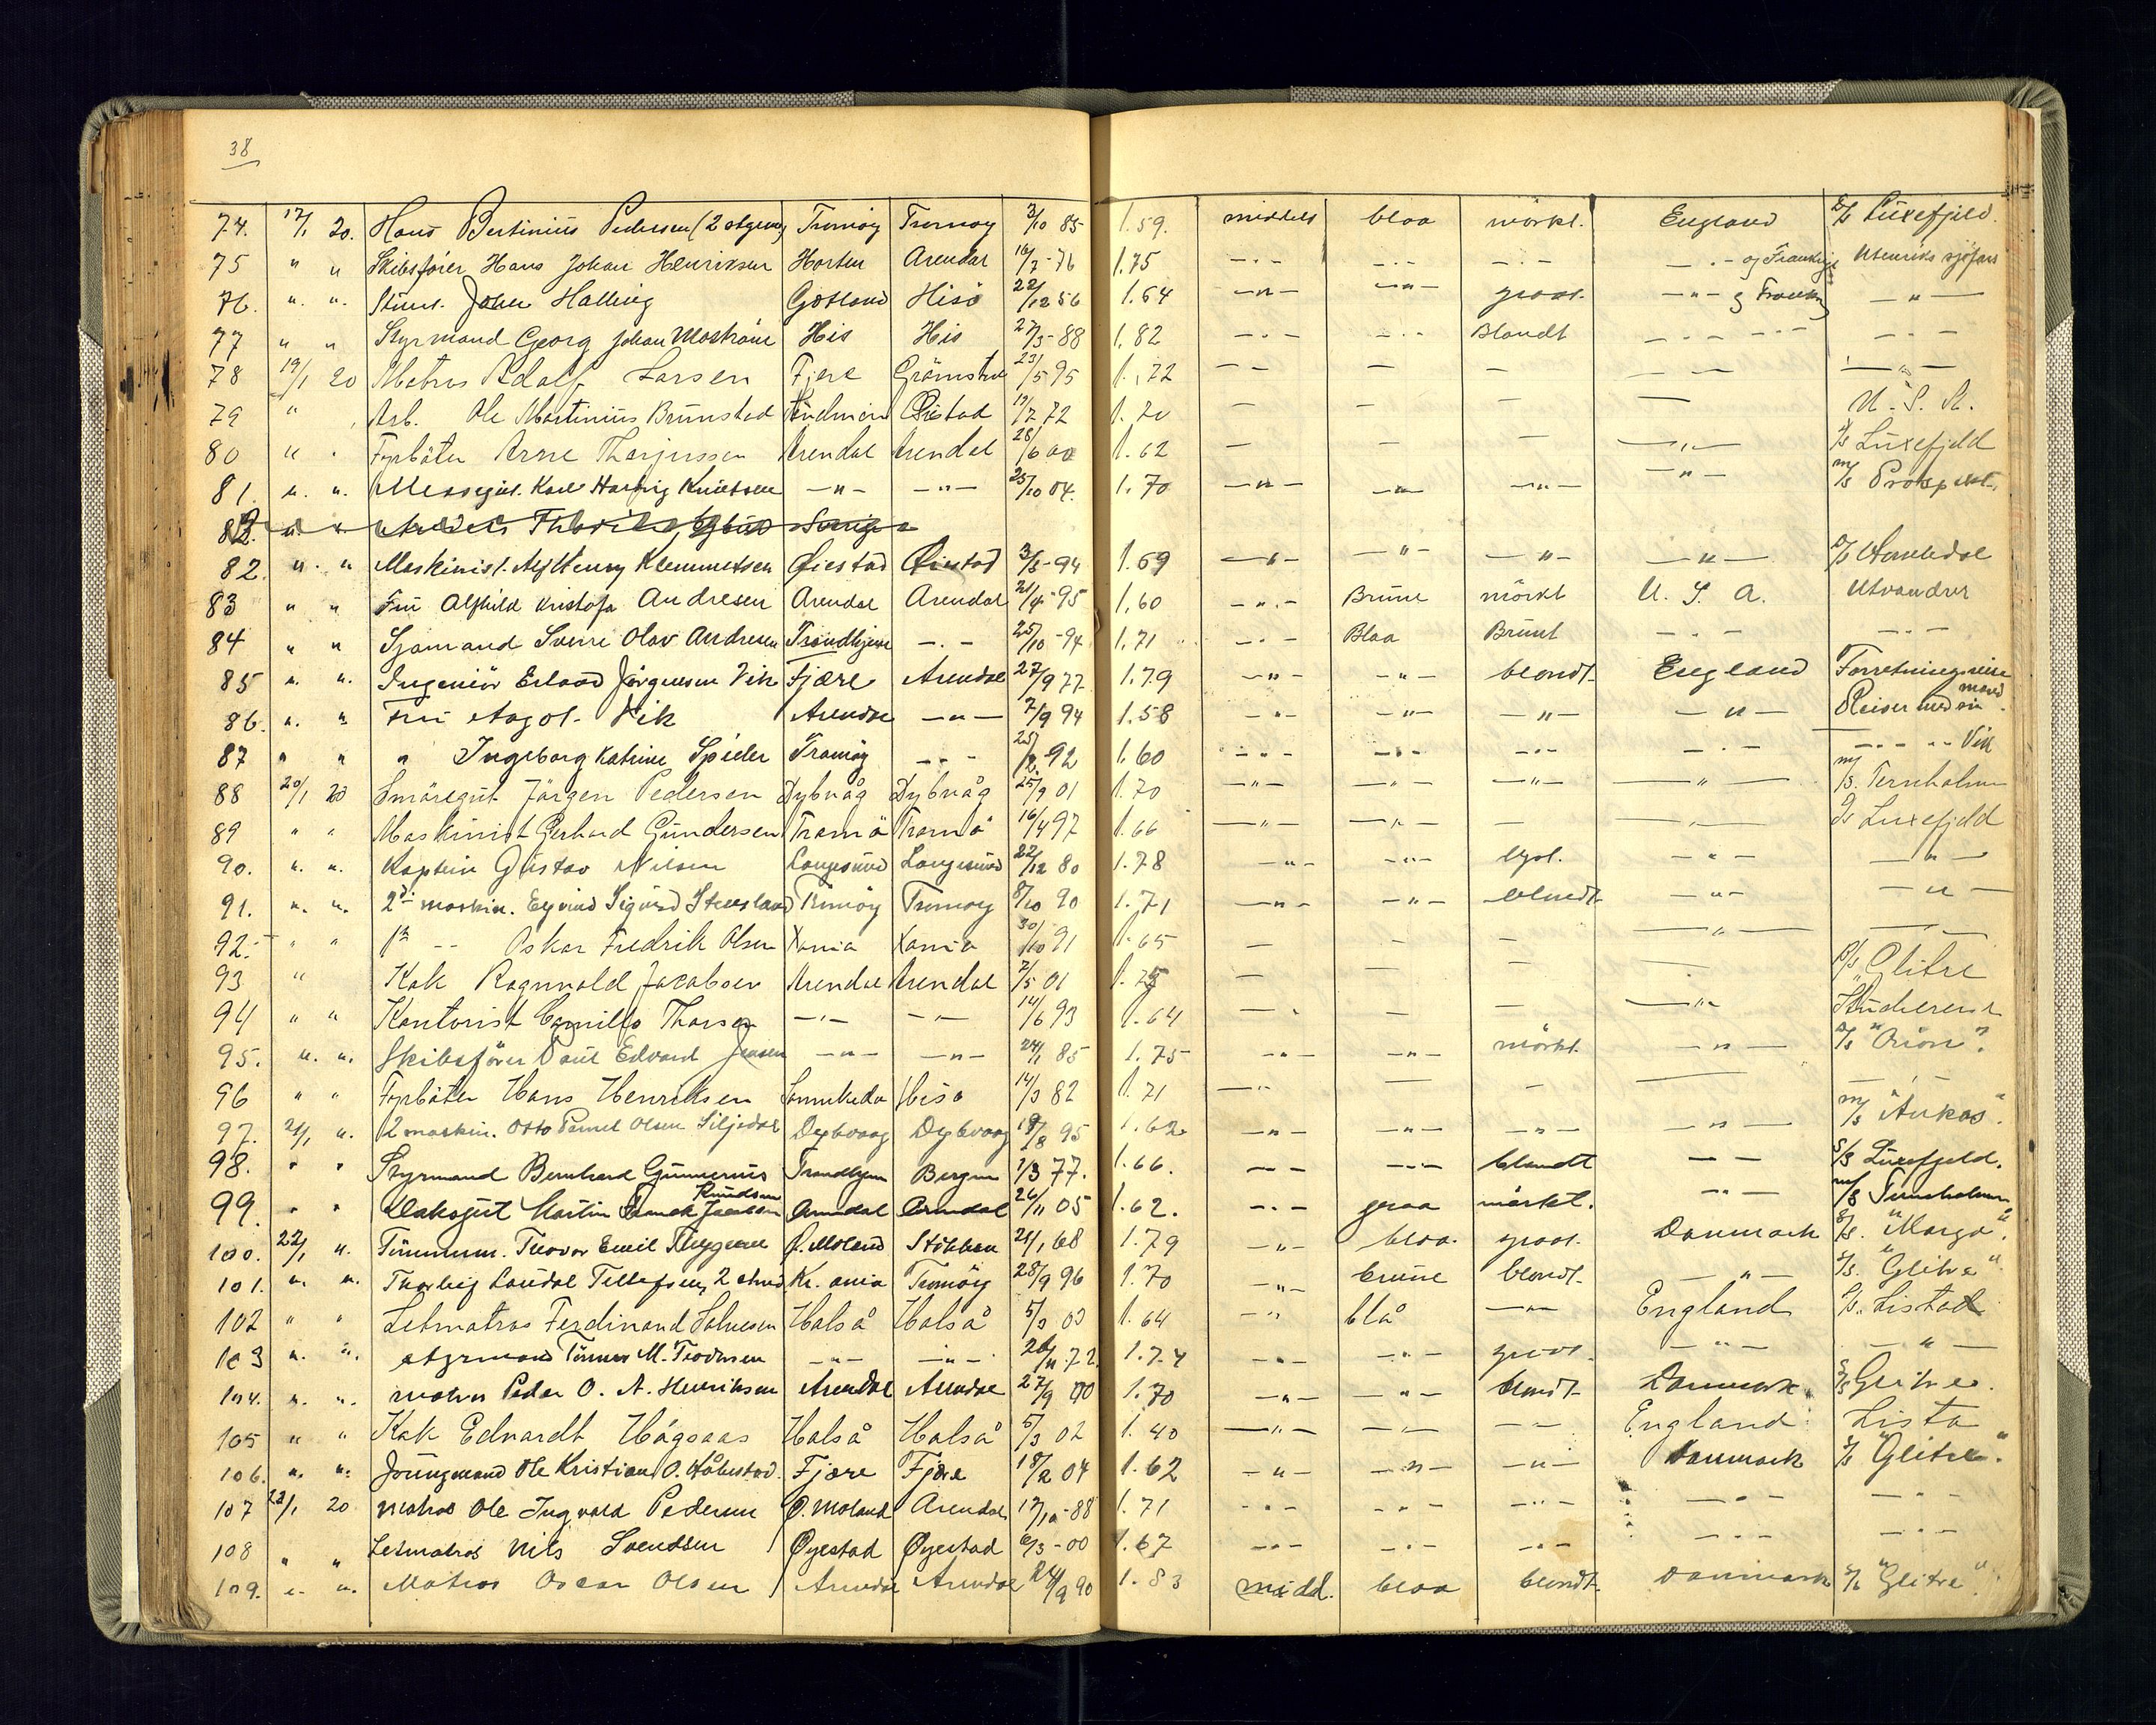 38
74. 17/1 20. Hans Bertinius Pedersen (2 styrm) Tromøy Tromøy 3/10 85 1.59. middels blaa mörkt. England D/S Luxefjeld.
75 " " Skibsfører Hans Johan Henriksen Horten Arendal 16/7-76 1.75 -.- -.- -.- -.- og Frankrige Utenriks sjøfart
76. " " Stuert. Johan Halling Gotland Hisö 22/12 56 1.64 -"- -"- graat. -"- og Frankrg -"-
77 " " Styrmand Georg Johan His His 27/3-88 1.82 -.- -.- Blondt -.-.- -.-
78 19/1 20 Matros Adolf Larsen Fjære 23/5 95 1.72 -- - - -- -"-
79 " Arb. Ole Martinius Brunstad Øistad 19/7 72 1.70 - - - - U.S.A.
80 " " Fyrbøter Arne Thorjussen Arendal Arendal 28/6 00 1.62 - - - -"- D/S Luxefjeld
81. " " Messegut. Karl Harvig Knutsen -"- -"- 25/10 04. 1.70 -"- -"- -"- -"- M/S Prospekt.
82. " "
82. " " Maskinist. Alf Henry Klemmetsen Øiestad Øiestad 3/6-94 1.69 -"- -"- -"- -"- D/S
83 " " Fru Alfhild Kristofa Andresen Arendal Arendal 21/4-95 1.60 -"- Brune mörkt U.S.A. Utvandrer
84 " " Sjømand Sverre Olav Andresen Trondhjem -.- 25/10-94 1.71 -.- Blaa Brunt -.- -.-
85 " " Ingeniör Erland Jörgensen Vik Fjære Arendal 27/9 77 1.79 -"- -"- blondt England Forretningsreise
86. " " Fru Aagot. Vik Arendal -"- 7/9 94 1.58 -"- -"- -"- -"- Reiser med sin mand.
87 " " " Ingeborg Katrine Tromöy -.- 25/12 92 1.60 -.- -.- -.- -.- -.- Vik
88 20/1 20 Smöregut Jörgen Pedersen Dybvåg Dybvåg 25/9 01 1.70 -"- -"- -"- -"- M/S. Ternholm
89 " " Maskinist Gerhard Gundersen Tromö Tromö 16/4 97 1.66 -"- -"- - -"- D/S Luxefjeld
90. " " Kaptein Gustav Nilsen Langesund Langesund 22/12 80 1.78 -"- -"- lyst. -"- -"-
91. " " 2d maskin. Eyvind Sigurd Tromöy Tromoy 8/10 90 1.71 -"- -"- blondt -"- -"-
92. " " 1st -- Oskar Fredrik Olsen Xania Xania 30/10 91 1.65 - - - -"- --
93 " Kok Ragnvald Jacobsen Arendal Arendal 2/5 01 1.75 - - - - D/S "Glitre
94 " " Kontorist Camillo Thorsen -"- -"- 14/6 93 1.64 - - - -"- Studerende
95. " " Skibsfører Paul Edvard Jensen -"- -"- 24/1 85 1.75 -"- -"- mörkt. -"- D/S "Orion".
96 " " Fyrbøter Hans Henriksen Hisø 14/3 82 1.71 -"- - - - - " -
97. 21/1 " 2 maskin. Otto Pernel Olsen Siljedal Dybvaag Dybvaag 18/8 95 1.62 -"- -"- -"- -"- M/S "Aukas".
98. " " Styrmand Bernhard Gunnerius Trondhjem Bergen 1/3 77. 1.66. -- --- blondt -- S/S Luxefjeld.
Knudsen
99. " " Dæksgut Martin Arendal Arendal 26/11 05 1.62. -.- graa mörkt. -"- M/S Ternholm
100. 22/1 " Tømmerm. Teodor Emil Ø. Moland Stokken 21/1 68 1.79 -"- blaa. graat. Danmark S/S. "Margo".
101. " " Thorleif Laudal Tellefsen, 2 stuert Kr.ania Tromöy 28/9 96 1.70 -"- brune blondt. -"- S/S. "Glitre"
102 " " Letmatros Ferdinand Salvesen Halså Halså 5/3 03 1.64 -" blå -"- England S/S. Listad
103 " " Styrmand Tønnes M. Teodorsen -"- -"- 26/11 72. 1.74 -"- -"- graat. -"- -"-
104. " " matros Peder O. A. Henriksen Arendal Arendal 27/9 00 1.70 -"- -"- blondt Danmark S/S Glitre.
105 " " Kok Edvardt Hågsaas Halså Halså 5/3 02 1.40 -"- -- -- England Lista
106. " " Jungmand Ole Kristian O. Håbestad. Fjære Fjære 18/2 04 1.62 -"- -"- -"- Danmark S/S "Glitre".
107 23/1 20 matros Ole Ingvald Pedersen Ø. Moland Arendal 17/10-88 1.71 -.- -.- -"- -"- -"-
108 " " Letmatros Nils Svendsen Øyestad Øyestad 6/3-00 1.67 -.- -.- -.- -.- -.-
109. " " Matros Oscar Olsen Arendal Arendal 24/9 90 1.83 midd. blaa blondt Danmark S/S "Glitre".